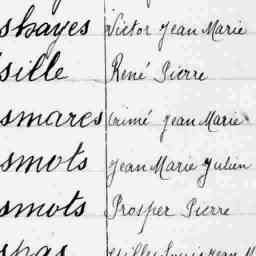 shayes Victor Jean Marie
sille René Pierre
smares Aimé Jean Marie
smots Jean Marie Julien
smots Prosper Pierre
spas